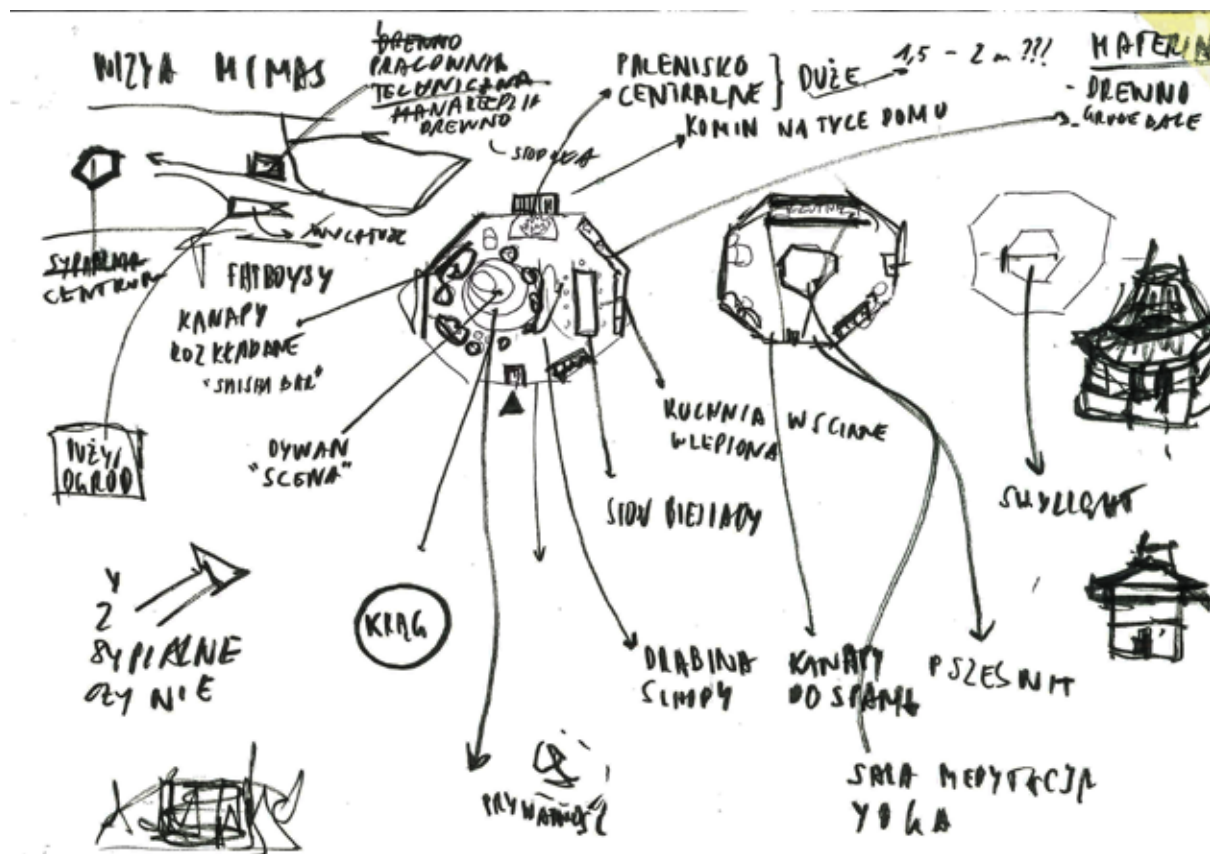 WIZYA MIMAS
DREWNO
PRACOWNIA
TECHNICZNA
DREWNO
PALENISKO
CENTRALNE
DUŻE
1,5 - 2 m ???
KOMIN NA TYLE DOMU
MATERIA
- DREWNO
- GRUBE BALE
CENTRUM
FATBOYSY
KANAPY
ROZKŁADANE
"SHISHA BAR"
DUŻY
OGRÓD
DYWAN
"SCENA"
KUCHNIA W ŚCIANE
WLEPIONA
STÓŁ BIESIADY
SKYLIGHT
KRĄG
2
SYPIALNE
CZY NIE
DRABINA
SCHODY
KANAPY
DO SPANIA
PRYWATNOŚĆ
SALA MEDYTACJI
YOGA